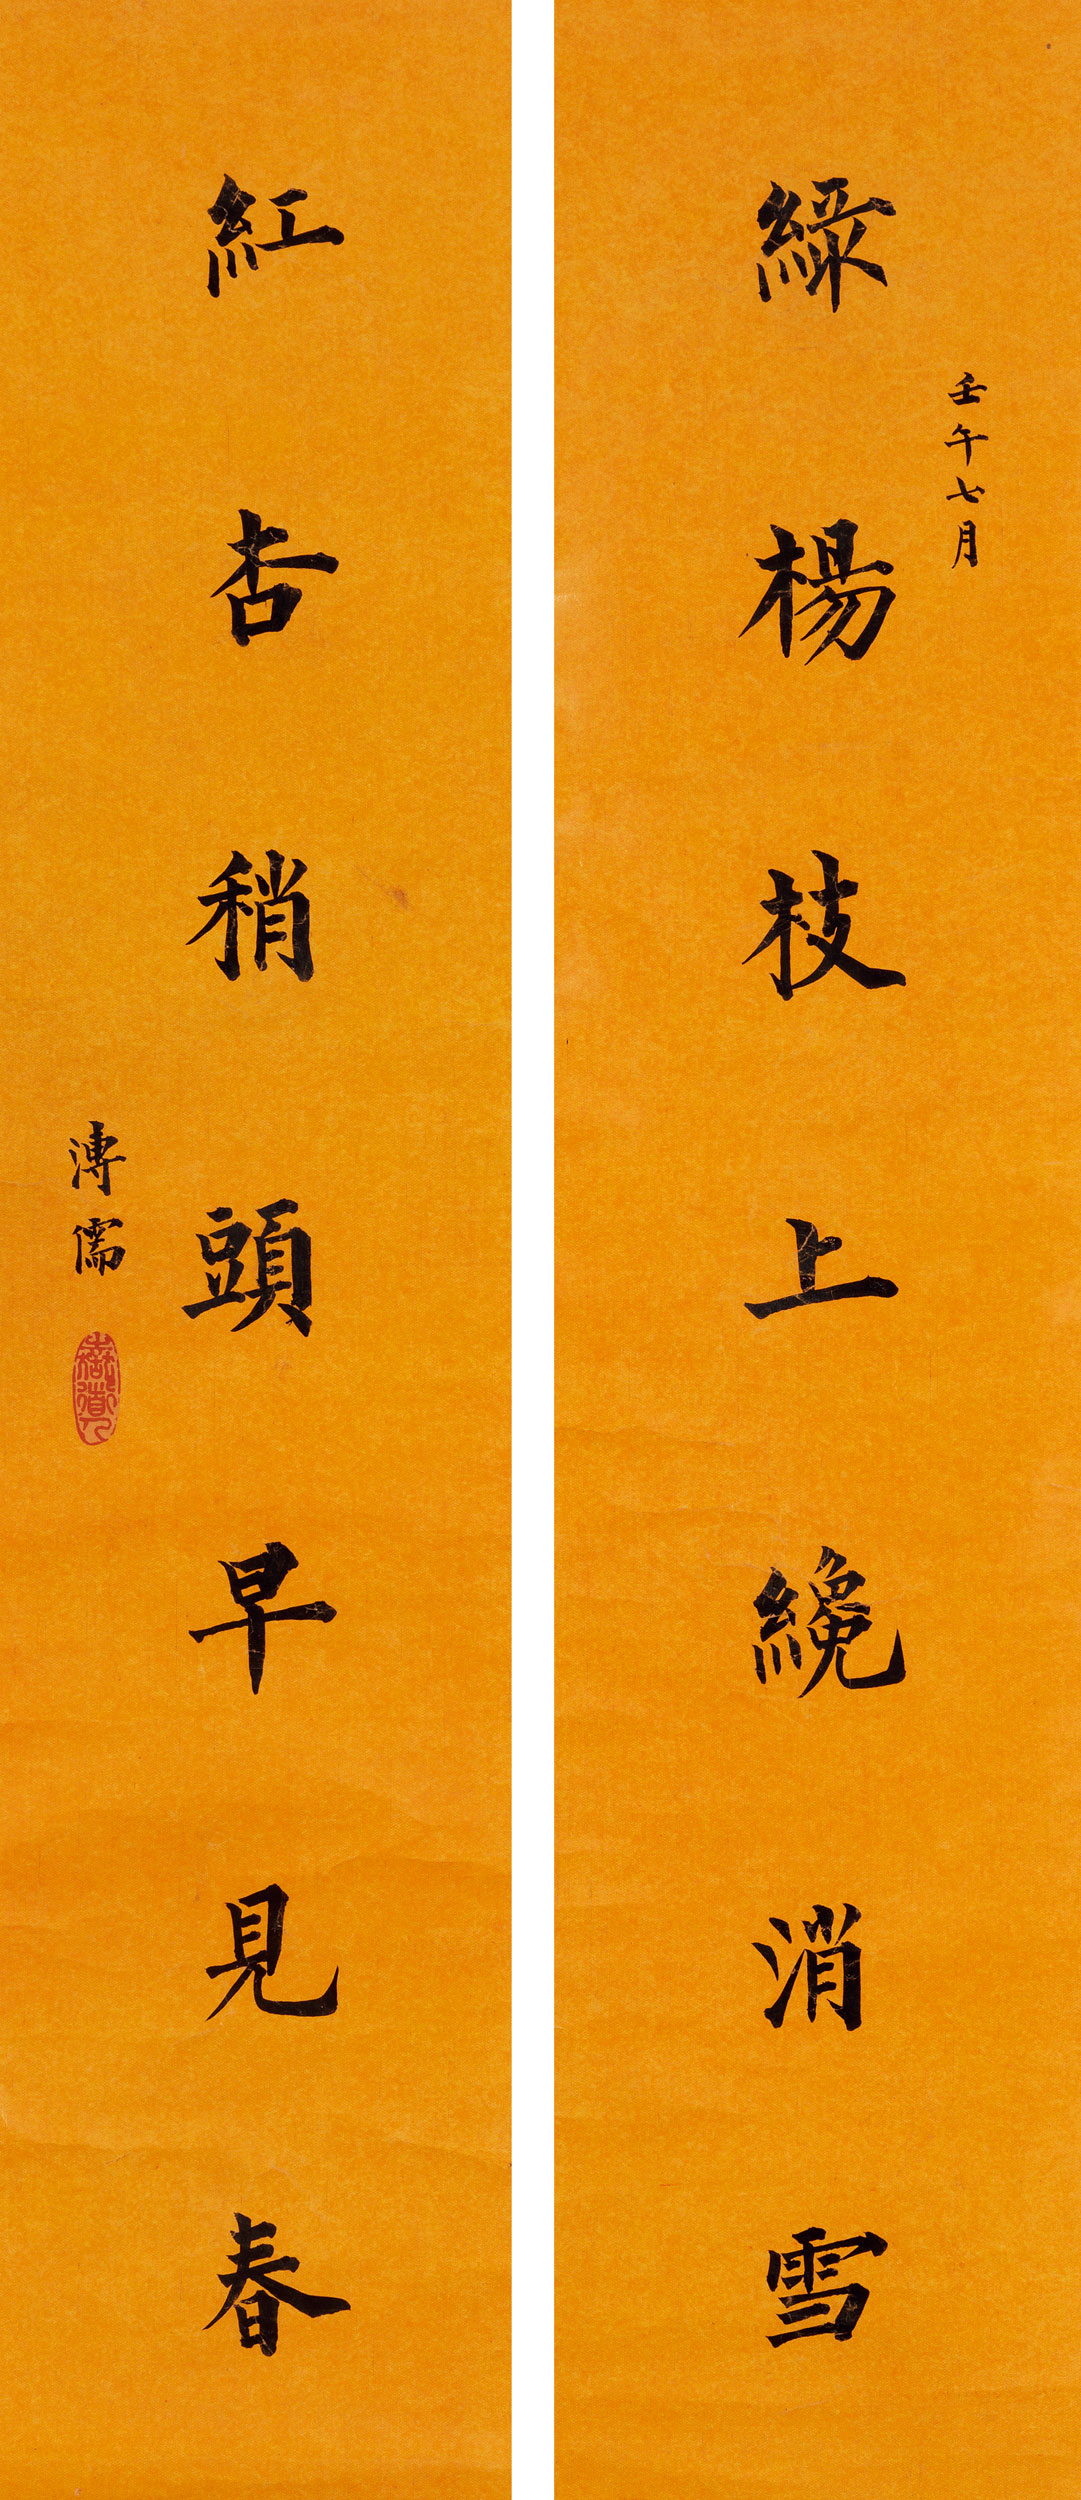 壬午七月
綠楊枝上纔消雪
紅杏稍頭早見春
溥儒